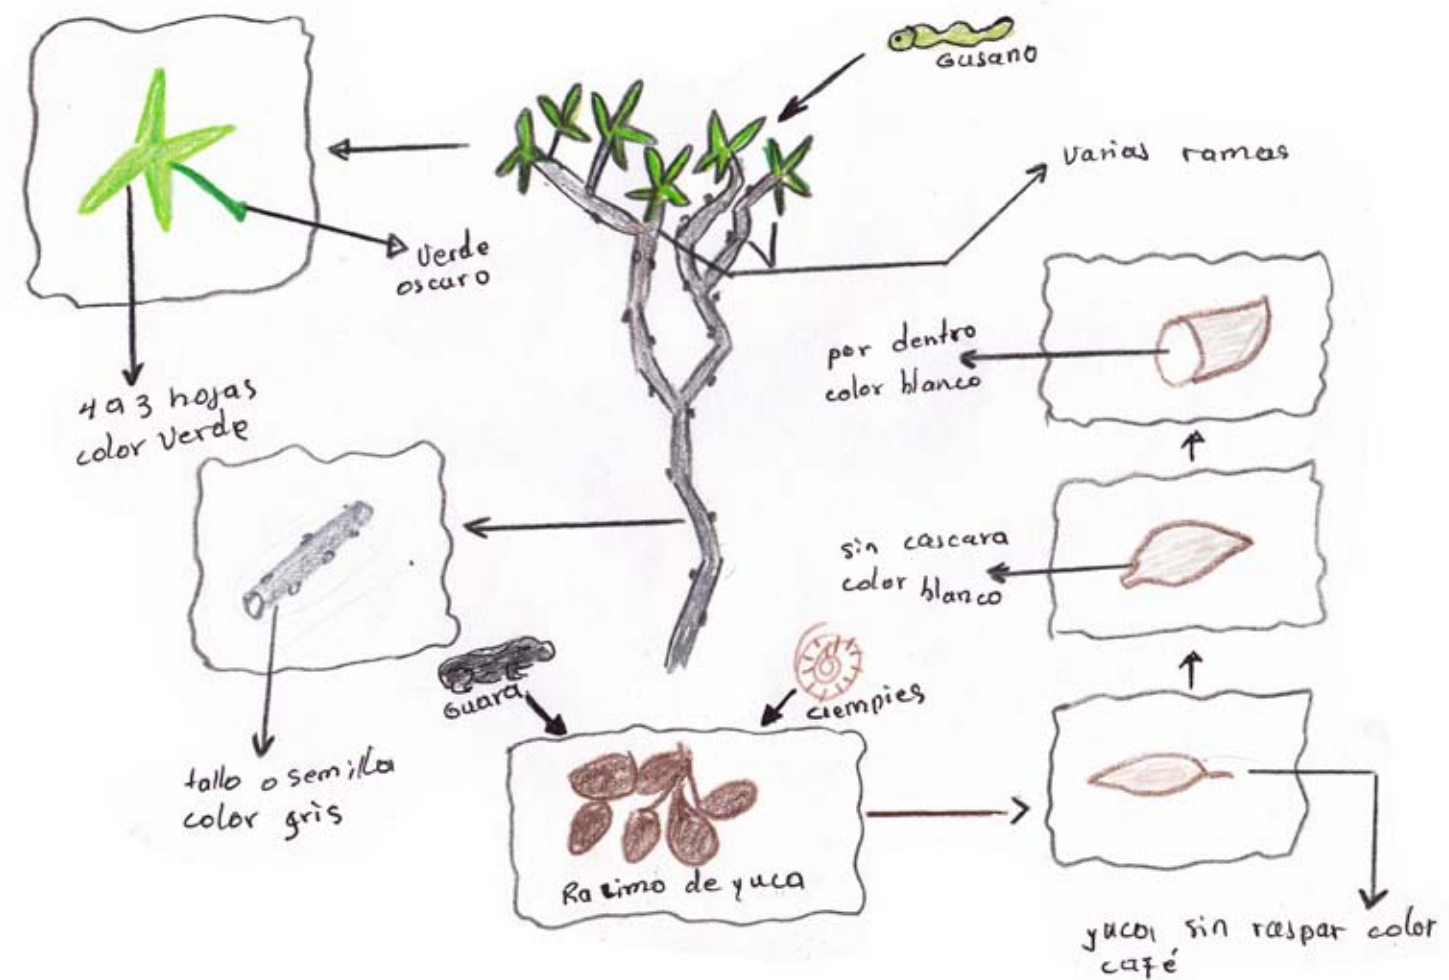 Gusano
Varias ramas
Verde
oscuro
4 a 3 hojas
color verde
por dentro
color blanco
sin cascara
color blanco
Guara
ciempies
tallo o semilla
color gris
Racimo de yuca
yuca sin raspar color
café